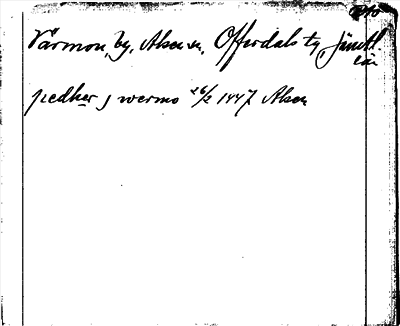 Värmon, by, Alsen sn, Offerdals tg, Jämtl.
län
pedher j wermo 26/2 1447 Alsen